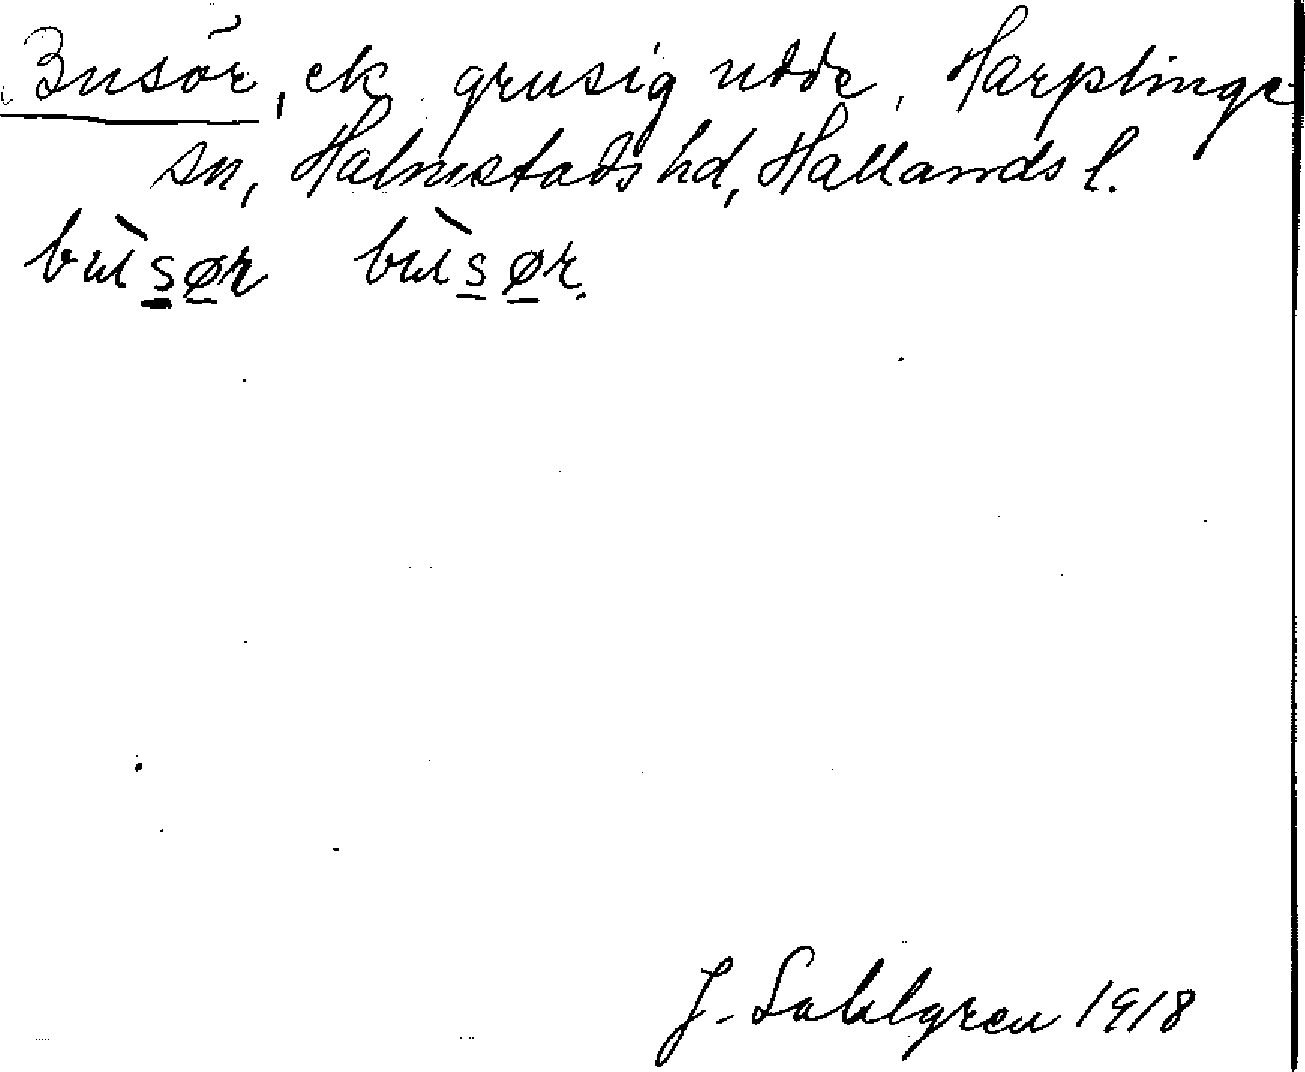 Busör, ek grusig udde, Harplinge
sn, Halmstads hd, Hallands l.
bùsør bùsør.
J. Sahlgren 1918